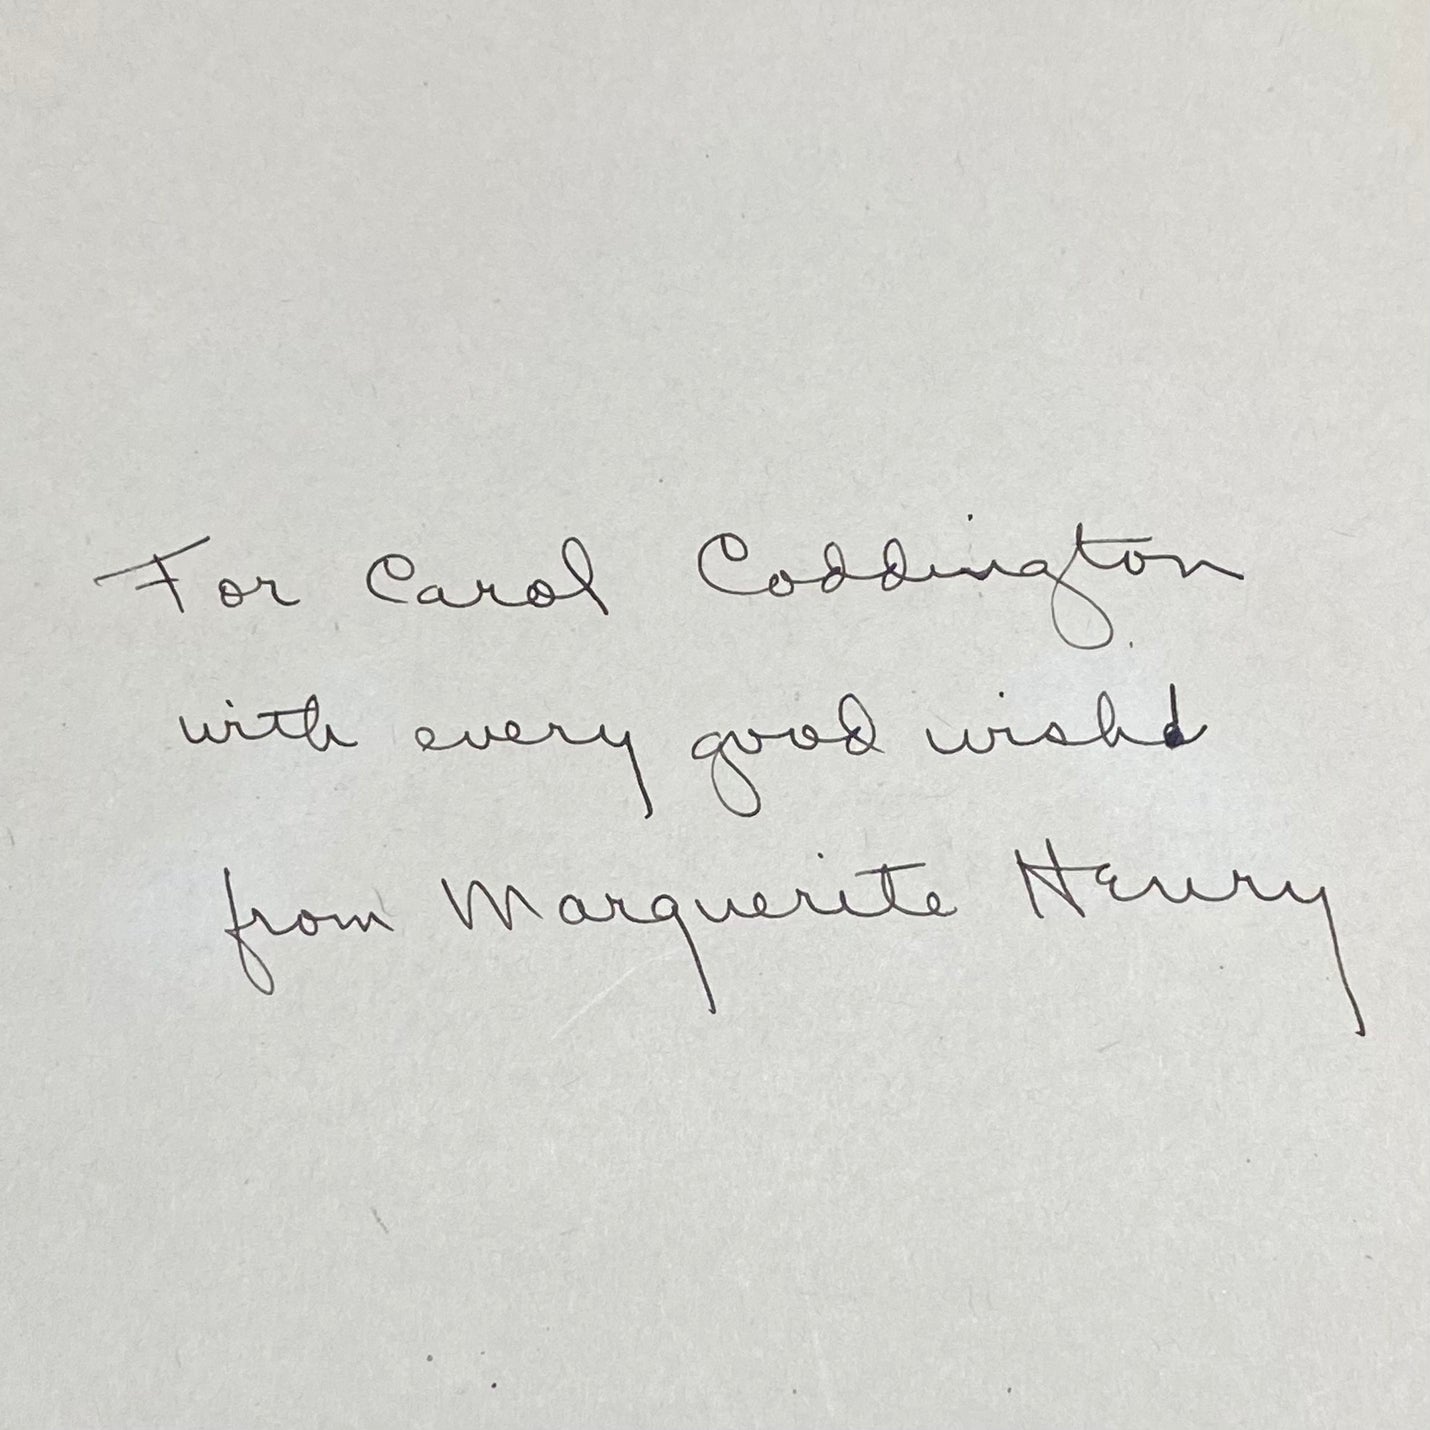 For Carol Coddington
with every good wish
from Marguerite Henry